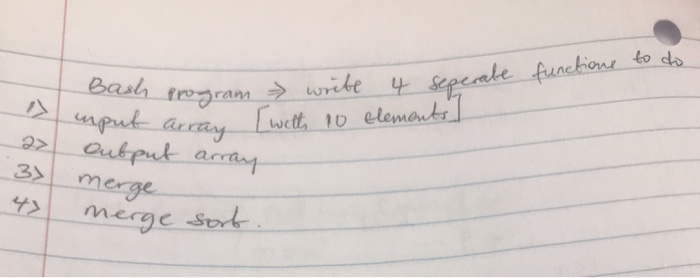 Bash program ⇒ write 4 seperate functions to do
1> input array [with 10 elements]
2> output array
3> merge
4> merge sort.